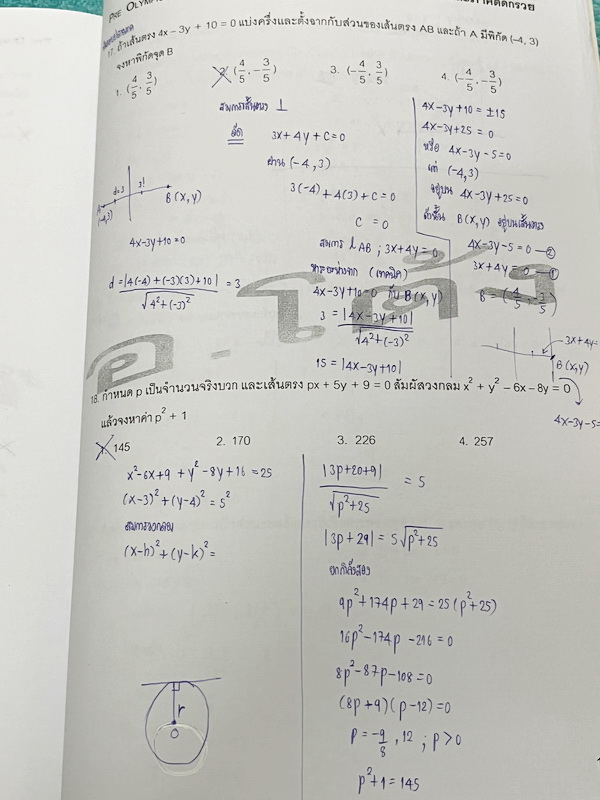 PRE OLYMP
17. ถ้าเส้นตรง 4x – 3y + 10 = 0 แบ่งครึ่งและตั้งฉากกับส่วนของเส้นตรง AB และถ้า A มีพิกัด (–4, 3)
จงหาพิกัดจุด B
1. (4/5, 3/5)
2. (4/5, –3/5)
3. (–4/5, 3/5)
4. (–4/5, –3/5)
สมการเส้นตรง ⊥
คือ 3x+4y+C=0
ผ่าน (-4,3)
3(-4)+4(3)+C=0
C = 0
สมการ l AB ; 3x+4y=0
4x-3y+10=0 กับ B(x,y)
3 = |4x-3y+10| / √4²+(-3)²
15 = |4x-3y+10|
d=3
3!
(-4,3)
B(x,y)
4x-3y+10=0
d = |4(-4)+(-3)(3)+10| / √4²+(-3)² = 3
4x-3y+10 = ±15
4x-3y+25 = 0
หรือ 4x-3y-5=0
แต่ (-4,3)
อยู่บน 4x-3y+25=0
ดังนั้น B(x,y) อยู่บนเส้นตรง
4x-3y-5=0 —②
3x+4y=0 —①
B = (4/5, -3/5)
3x+4y=
B(x,y)
4x-3y-5=
อ.โต้ง
18. กำหนด p เป็นจำนวนจริงบวก และเส้นตรง px + 5y + 9 = 0 สัมผัสวงกลม x² + y² – 6x – 8y = 0
แล้วจงหาค่า p² + 1
1. 145
2. 170
3. 226
4. 257
x²-6x+9+y²-8y+16=25
(x-3)²+(y-4)²=5²
สมการวงกลม
(x-h)²+(y-k)²=
r
O
|3p+20+9| / √p²+25 = 5
|3p+29| = 5√p²+25
ยกกำลังสอง
9p²+174p+29=25(p²+25)
16p²-174p-216=0
8p²-87p-108=0
(8p+9)(p-12)=0
p = -9/8, 12 ; p>0
p²+1=145